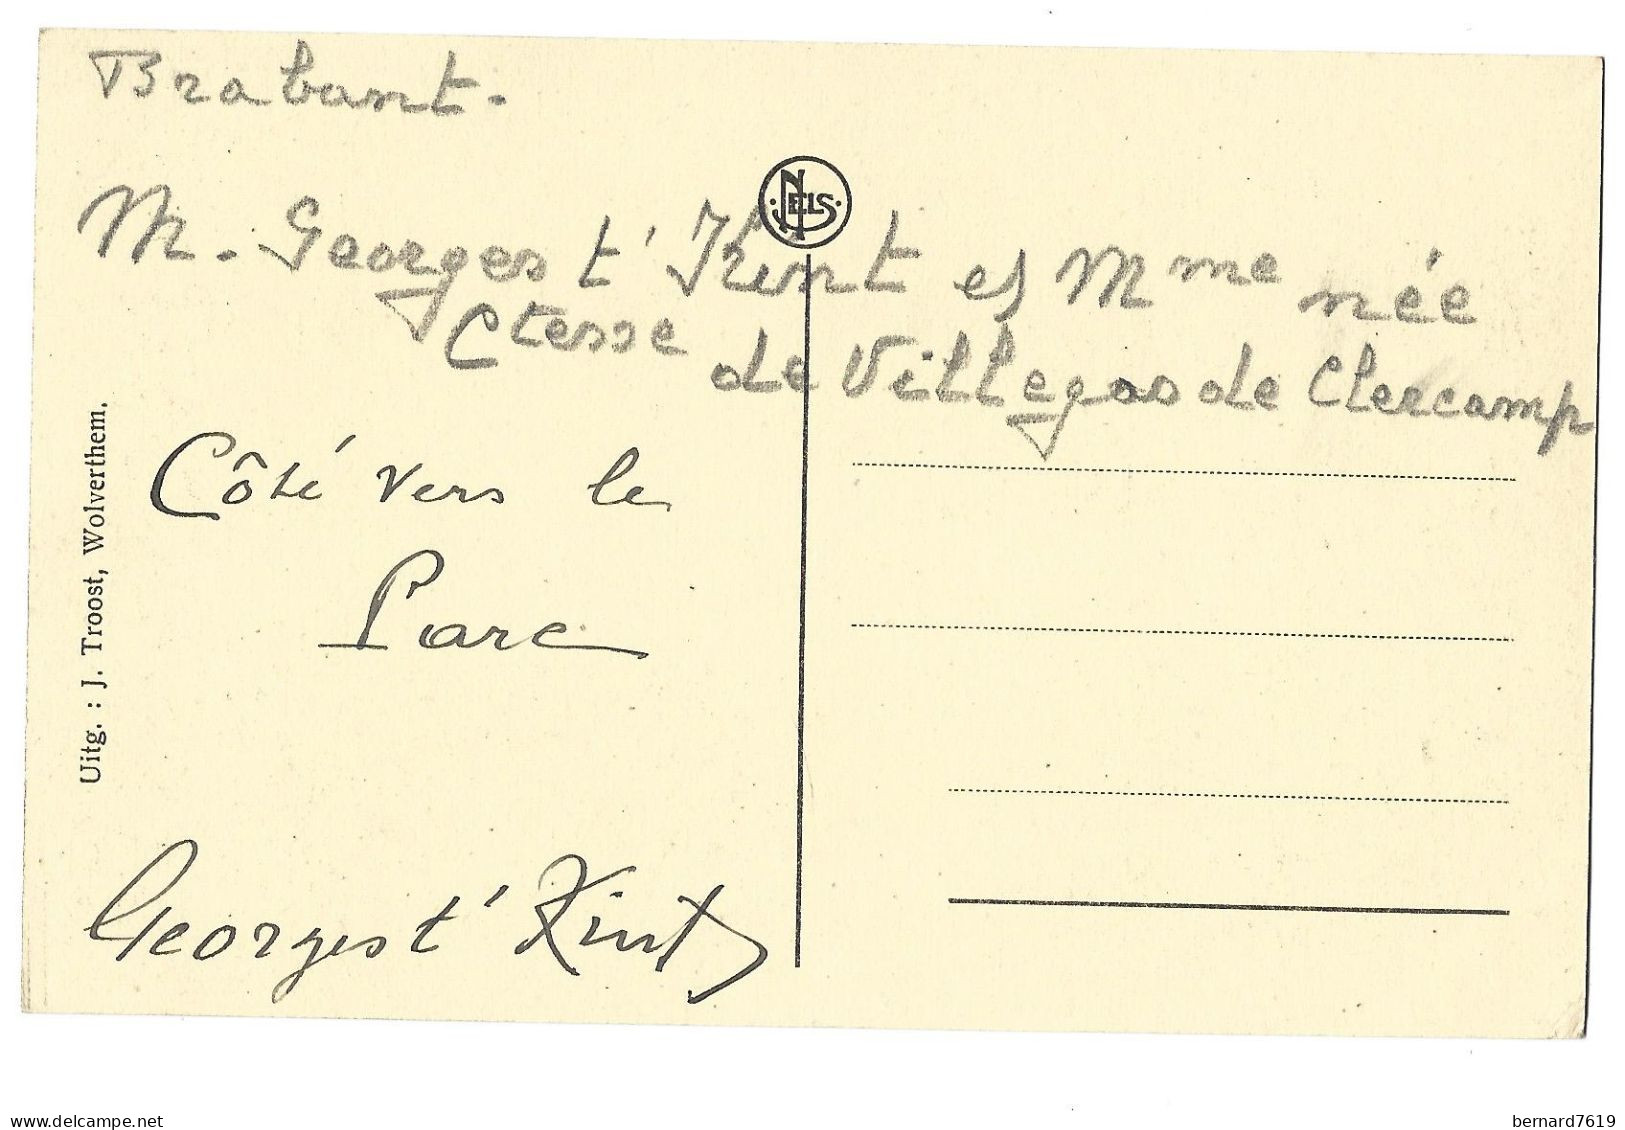 Brabant.
NELS
M. Georges t'Kint et Mme née
Ctesse de Villegas de Clercamp
Côté vers le
Parc
Georges t'Kint
Uitg. : J. Troost, Wolverthem.
www.delcampe.net
bernard7619